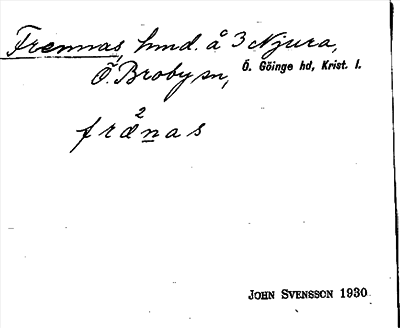 Frennas, hmd. å 3 Njura,
Ö. Broby sn, Ö. Göinge hd, Krist. l.
2
frænas
JOHN SVENSSON 1930